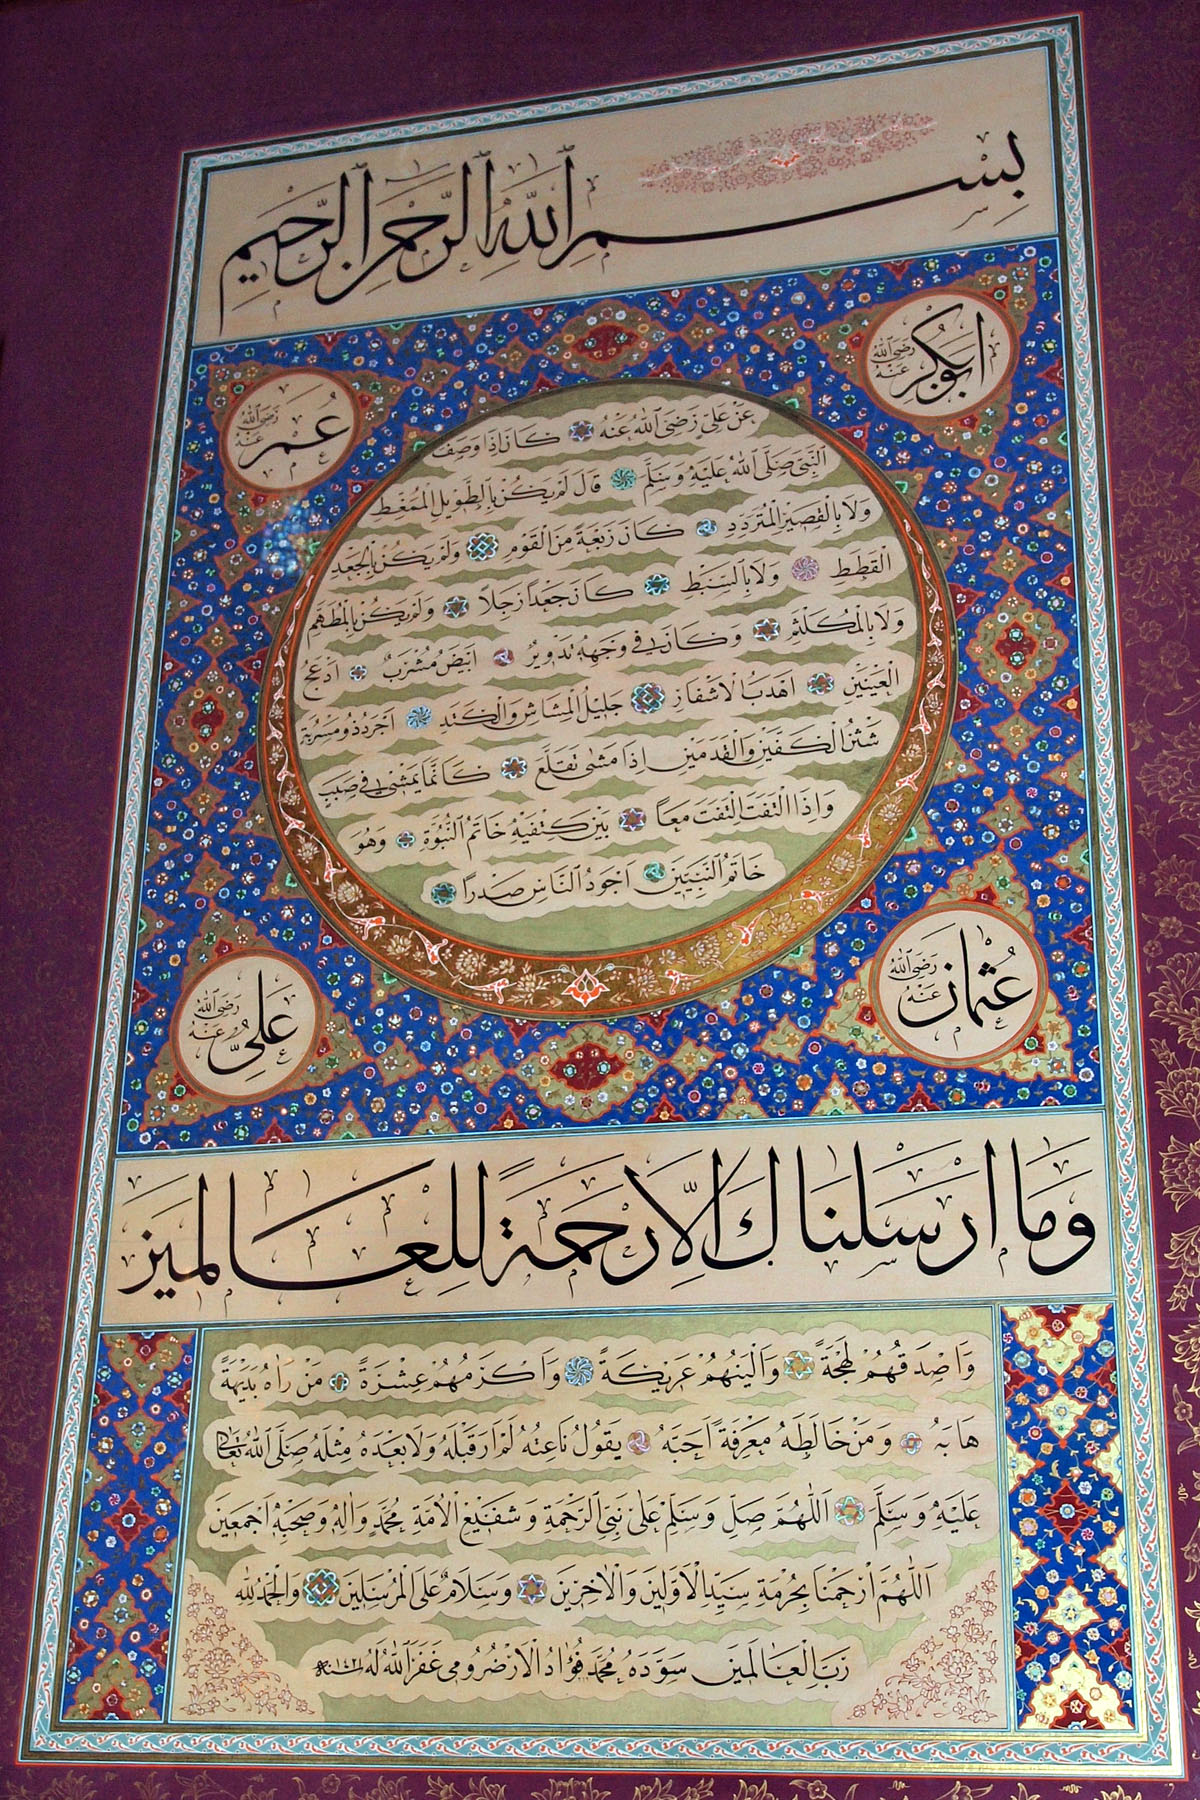 بِسْمِ اللَّهِ الرَّحْمَنِ الرَّحِيمِ
ابوبكر رضي الله عنه
عمر رضي الله عنه
عَنْ عَلِيٍّ رَضِيَ اللهُ عَنْهُ كَانَ اِذَا وَصَفَ
النَّبِيَّ صَلَّى اللهُ عَلَيْهِ وَسَلَّمَ قَالَ لَمْ يَكُنْ بِالطَّوِيلِ الْمُمَّغِطِ
وَلَا بِالْقَصِيرِ الْمُتَرَدِّدِ كَانَ رَبْعَةً مِنَ الْقَوْمِ وَلَمْ يَكُنْ بِالْجَعْدِ
الْقَطِطِ وَلَا بِالسَّبْطِ كَانَ جَعْداً رَجِلاً وَلَمْ يَكُنْ بِالْمُطَهَّمِ
وَلَا بِالْمُكَلْثَمِ وَكَانَ فِي وَجْهِهِ تَدْوِيرٌ اَبْيَضُ مُشْرَبٌ اَدْعَجُ
الْعَيْنَيْنِ اَهْدَبُ الْاَشْفَارِ جَلِيلُ الْمُشَاشِ وَالْكَتَدِ اَجْرَدُ ذُو مَسْرُبَةٍ
شَثْنُ الْكَفَّيْنِ وَالْقَدَمَيْنِ اِذَا مَشَى تَقَلَّعَ كَاَنَّمَا يَمْشِي فِي صَبَبٍ
وَاِذَا الْتَفَتَ الْتَفَتَ مَعاً بَيْنَ كَتِفَيْهِ خَاتَمُ النُّبُوَّةِ وَهُوَ
خَاتَمُ النَّبِيِّينَ اَجْوَدُ النَّاسِ صَدْراً
عثمان رضي الله عنه
علي رضي الله عنه
وَمَا اَرْسَلْنَاكَ اِلَّا رَحْمَةً لِلْعَالَمِينَ
وَاَصْدَقُهُمْ لَهْجَةً وَاَلْيَنُهُمْ عَرِيكَةً وَاَكْرَمُهُمْ عِشْرَةً مَنْ رَاٰهُ بَدِيهَةً
هَابَهُ وَمَنْ خَالَطَهُ مَعْرِفَةً اَحَبَّهُ يَقُولُ نَاعِتُهُ لَمْ اَرَ قَبْلَهُ وَلَا بَعْدَهُ مِثْلَهُ صَلَّى اللهُ تَعَالَى
عَلَيْهِ وَسَلَّمَ اَللّٰهُمَّ صَلِّ وَسَلِّمْ عَلَى نَبِيِّ الرَّحْمَةِ وَشَفِيعِ الْاُمَّةِ مُحَمَّدٍ وَاٰلِهِ وَصَحْبِهِ اَجْمَعِينَ
اَللّٰهُمَّ ارْحَمْنَا بِحُرْمَةِ سَيِّدِ الْاَوَّلِينَ وَالْاٰخِرِينَ وَسَلَامٌ عَلَى الْمُرْسَلِينَ وَالْحَمْدُ لِلّٰهِ
رَبِّ الْعَالَمِينَ سَوَّدَهُ مُحَمَّد فُؤَادُ الْاَرْضُرُومِي غَفَرَ اللهُ لَهُ